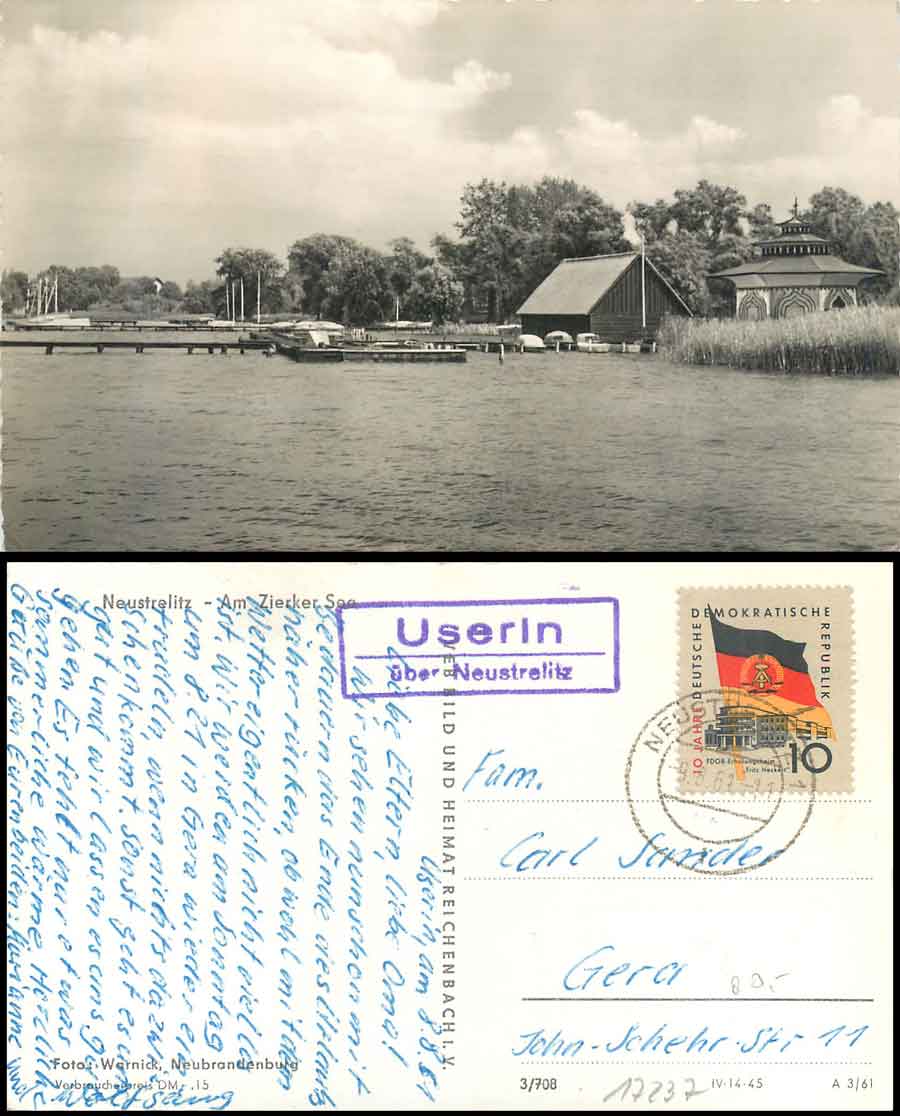 Neustrelitz - Am Zierker See
Userin
über Neustrelitz
DEUTSCHE DEMOKRATISCHE REPUBLIK
10 JAHRE
FDGB-Erholungsheim
"Fritz Heckert"
10
NEUST
VEB BILD UND HEIMAT REICHENBACH I. V.
Userin, am 8.8.61
Liebe Eltern, liebe Oma!
Wir sehen nun schon mit
Bedauern das Ende des Urlaubs
näher rücken, obwohl mit dem
Wetter eigentlich nicht viel los
ist. Wir werden am Sonntag
um 8.21 in Gera wieder ein-
treffen, wenn nichts dazwi-
schenkommt. Sonst geht es uns
gut und wir lassen es uns gut
gehen. Es fehlt nur etwas
sommerliche Wärme. Herzliche
Grüße von Euren beiden
und
Wolfgang
Fam.
Carl Sander
Gera
John-Schehr-Str 11
Foto: Warnick, Neubrandenburg
Verbraucherpreis DM -.15
3/708
17237
IV-14-45
A 3/61